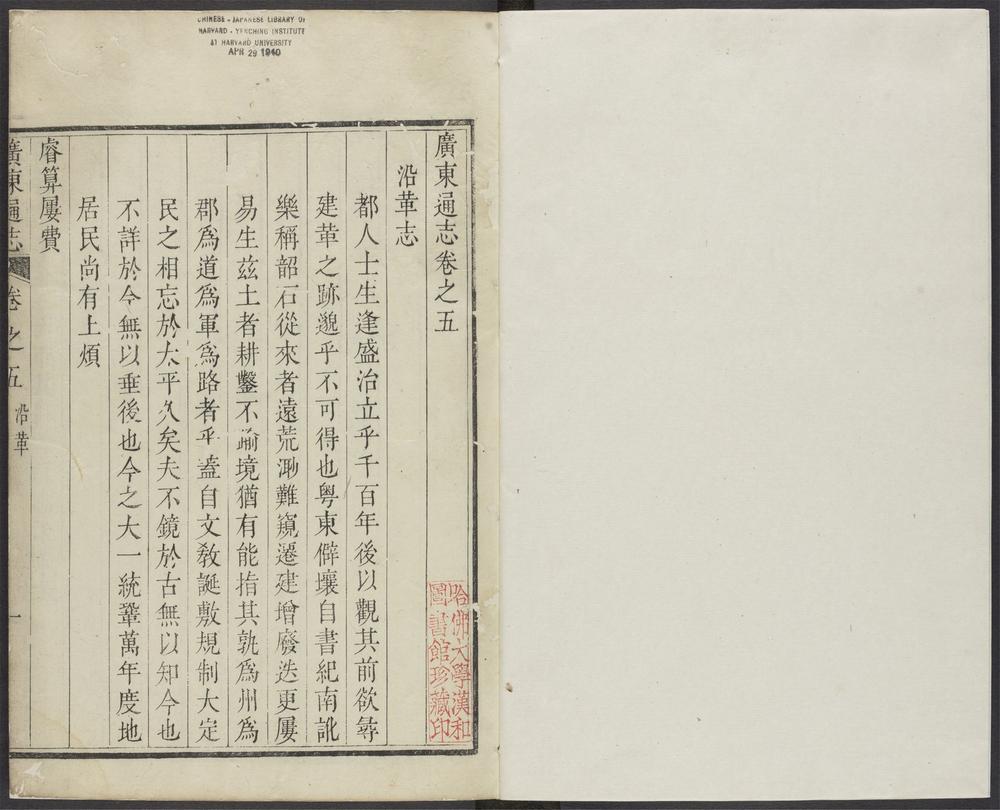 CHINESE - JAPANESE LIBRARY OF
HARVARD - YENCHING INSTITUTE
AT HARVARD UNIVERSITY
APR 29 1940
廣東通志卷之五
沿革志
都人士生逢盛治立乎千百年後以觀其前欲尋
建革之跡邈乎不可得也粵東僻壤自書紀南訛
樂稱韶石從來者遠荒渺難窺遷建增廢迭更屢
易生茲土者耕鑿不踰境猶有能指其孰爲州爲
郡爲道爲軍爲路者乎蓋自文教誕敷規制大定
民之相忘於太平久矣夫不鏡於古無以知今也
不詳於今無以垂後也今之大一統鞏萬年度地
居民尚有上煩
睿算屢費
廣東通志
卷之五
沿革
一
哈佛大學漢和
圖書館珍藏印